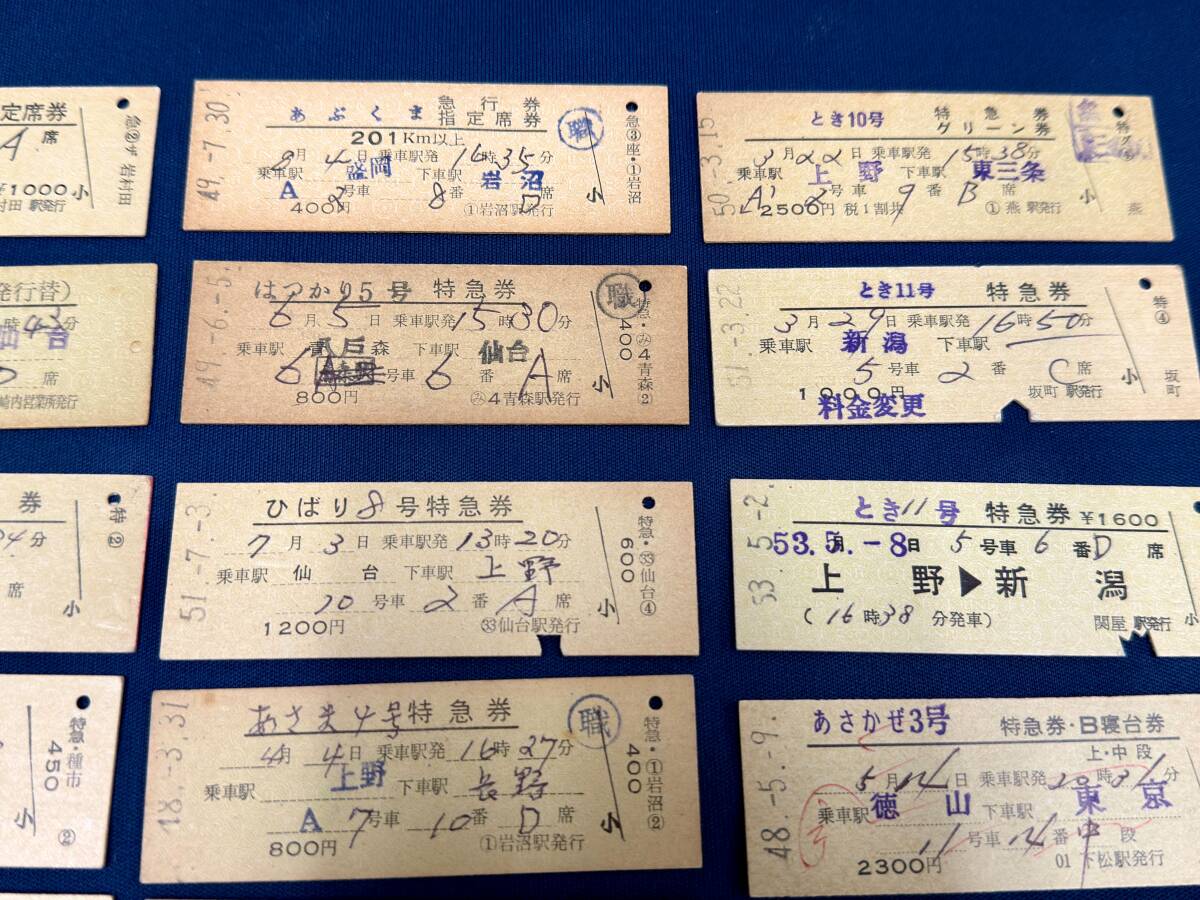 定席券
A 席
¥1000
小
村田 駅発行
急②ザ 岩村田
発行替)
時43分
仙台
席
崎内営業所発行
券
04分
席
特②
小
特急・種市
450
小
②
49.-7.30
あぶくま 急行券
指定席券
職
201Km以上
8月 4日 乗車駅発 14時35分
乗車駅 盛岡 下車駅 岩沼
A 3号車 8番 D
400円 ①岩沼駅発行
小
急③座・①岩沼
49.-6.-5
はつかり5号 特急券
職
6月 5日 乗車駅発 15時30分
乗車駅 八戸 下車駅 仙台
6号車 6番 A席
800円 ㋯4青森駅発行
小
特急・㋯4青森②
400
51.-7.-3
ひばり8号特急券
7月 3日 乗車駅発 13時20分
乗車駅 仙台 下車駅 上野
10号車 2番 A席
1200円 ㉝仙台駅発行
小
特急・㉝仙台④
600
48.-3.31
あさま4号特急券
職
4月 4日 乗車駅発 16時27分
乗車駅 上野 下車駅 長野
A 7号車 10番 D席
800円 ①岩沼駅発行
小
特急・①岩沼②
400
50.-3.15
とき10号 特急券
グリーン券
3月22日 乗車駅発 15時38分
乗車駅 上野 下車駅 東三条
2号車 9番 B席
2500円 税1割共 ①燕 駅発行
小
燕
51.-3.22
とき11号 特急券
3月29日 乗車駅発 16時50分
乗車駅 新潟 下車駅
5号車 2番 C席
1000円 坂町 駅発行
料金変更
小
特④
坂町
53.-5.-2
とき11号 特急券 ¥1600
53.5.-8日 5号車 6番D席
上野▶新潟
(16時38分発車) 関屋 駅発行
小
48.-5.-9
あさかぜ3号 特急券・B寝台券
上・中段
5月14日 乗車駅発 20時31分
乗車駅 徳山 下車駅 東京
11号車 14番 中段
2300円 01 下松駅発行